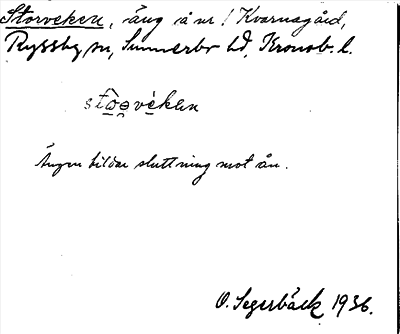 Storveken, äng å nr 1 Kvarnagård,
Ryssby sn, Sunnerbo hd, Kronob. l.
Ängen bildar sluttning mot ån.
O. Segerbäck 1936.